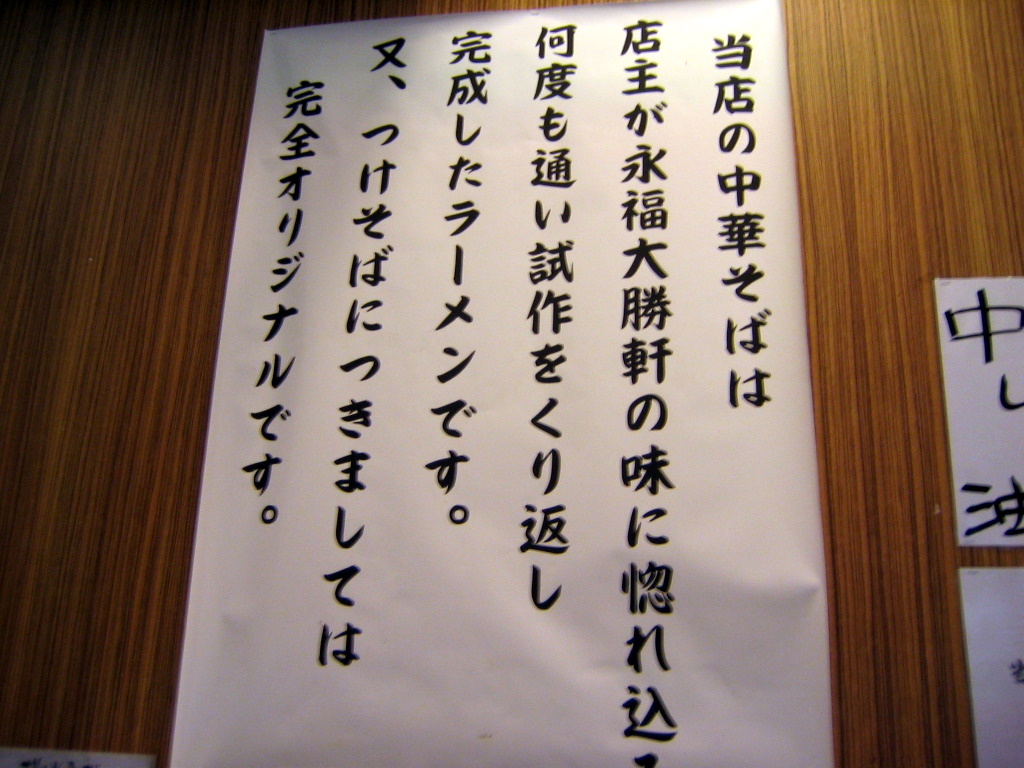 当店の中華そばは
店主が永福大勝軒の味に惚れ込
何度も通い試作をくり返し
完成したラーメンです。
又、つけそばにつきましては
完全オリジナルです。
中
し
油